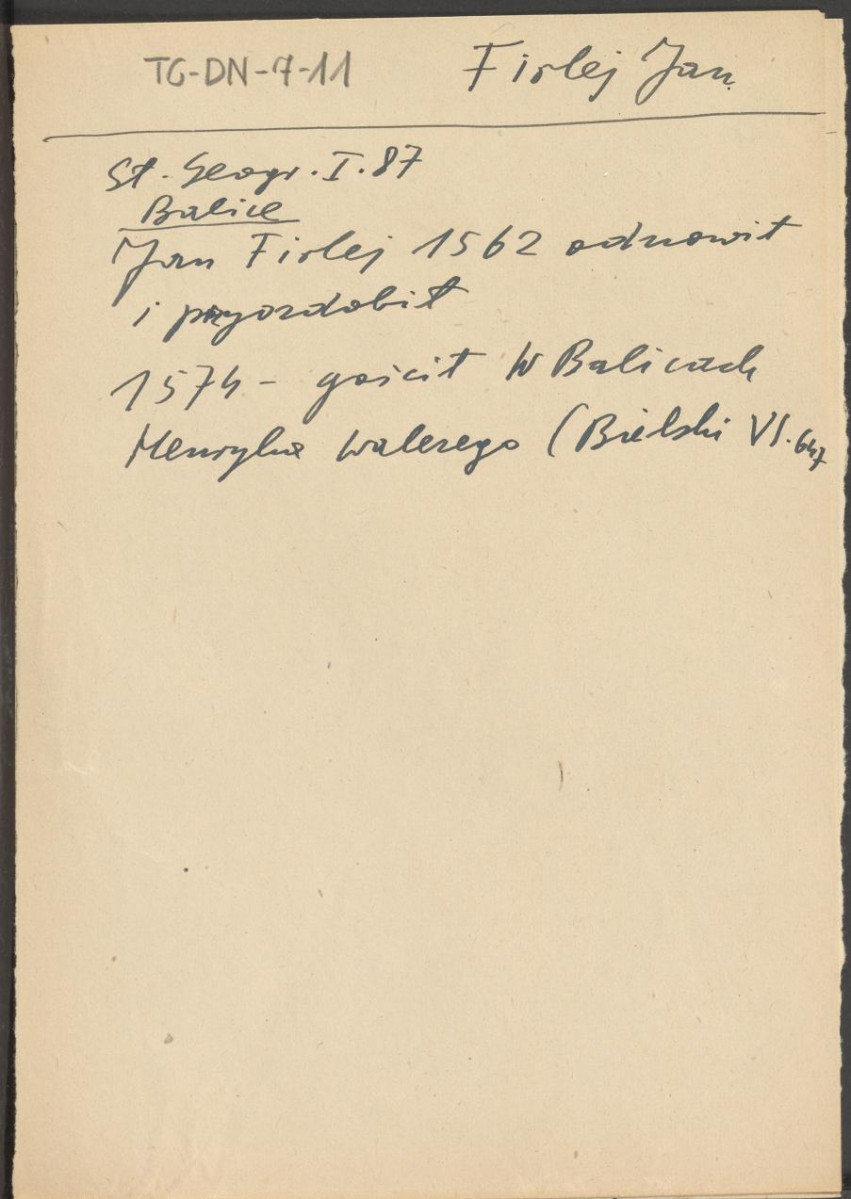 TG-DN-7-11 Firlej Jan.
Sł. Geogr. I. 87
Balice
Jan Firlej 1562 odnowił
i przyozdobił
1574 - gościł W Balicach
Henryka Walezego (Bielski VI. 647